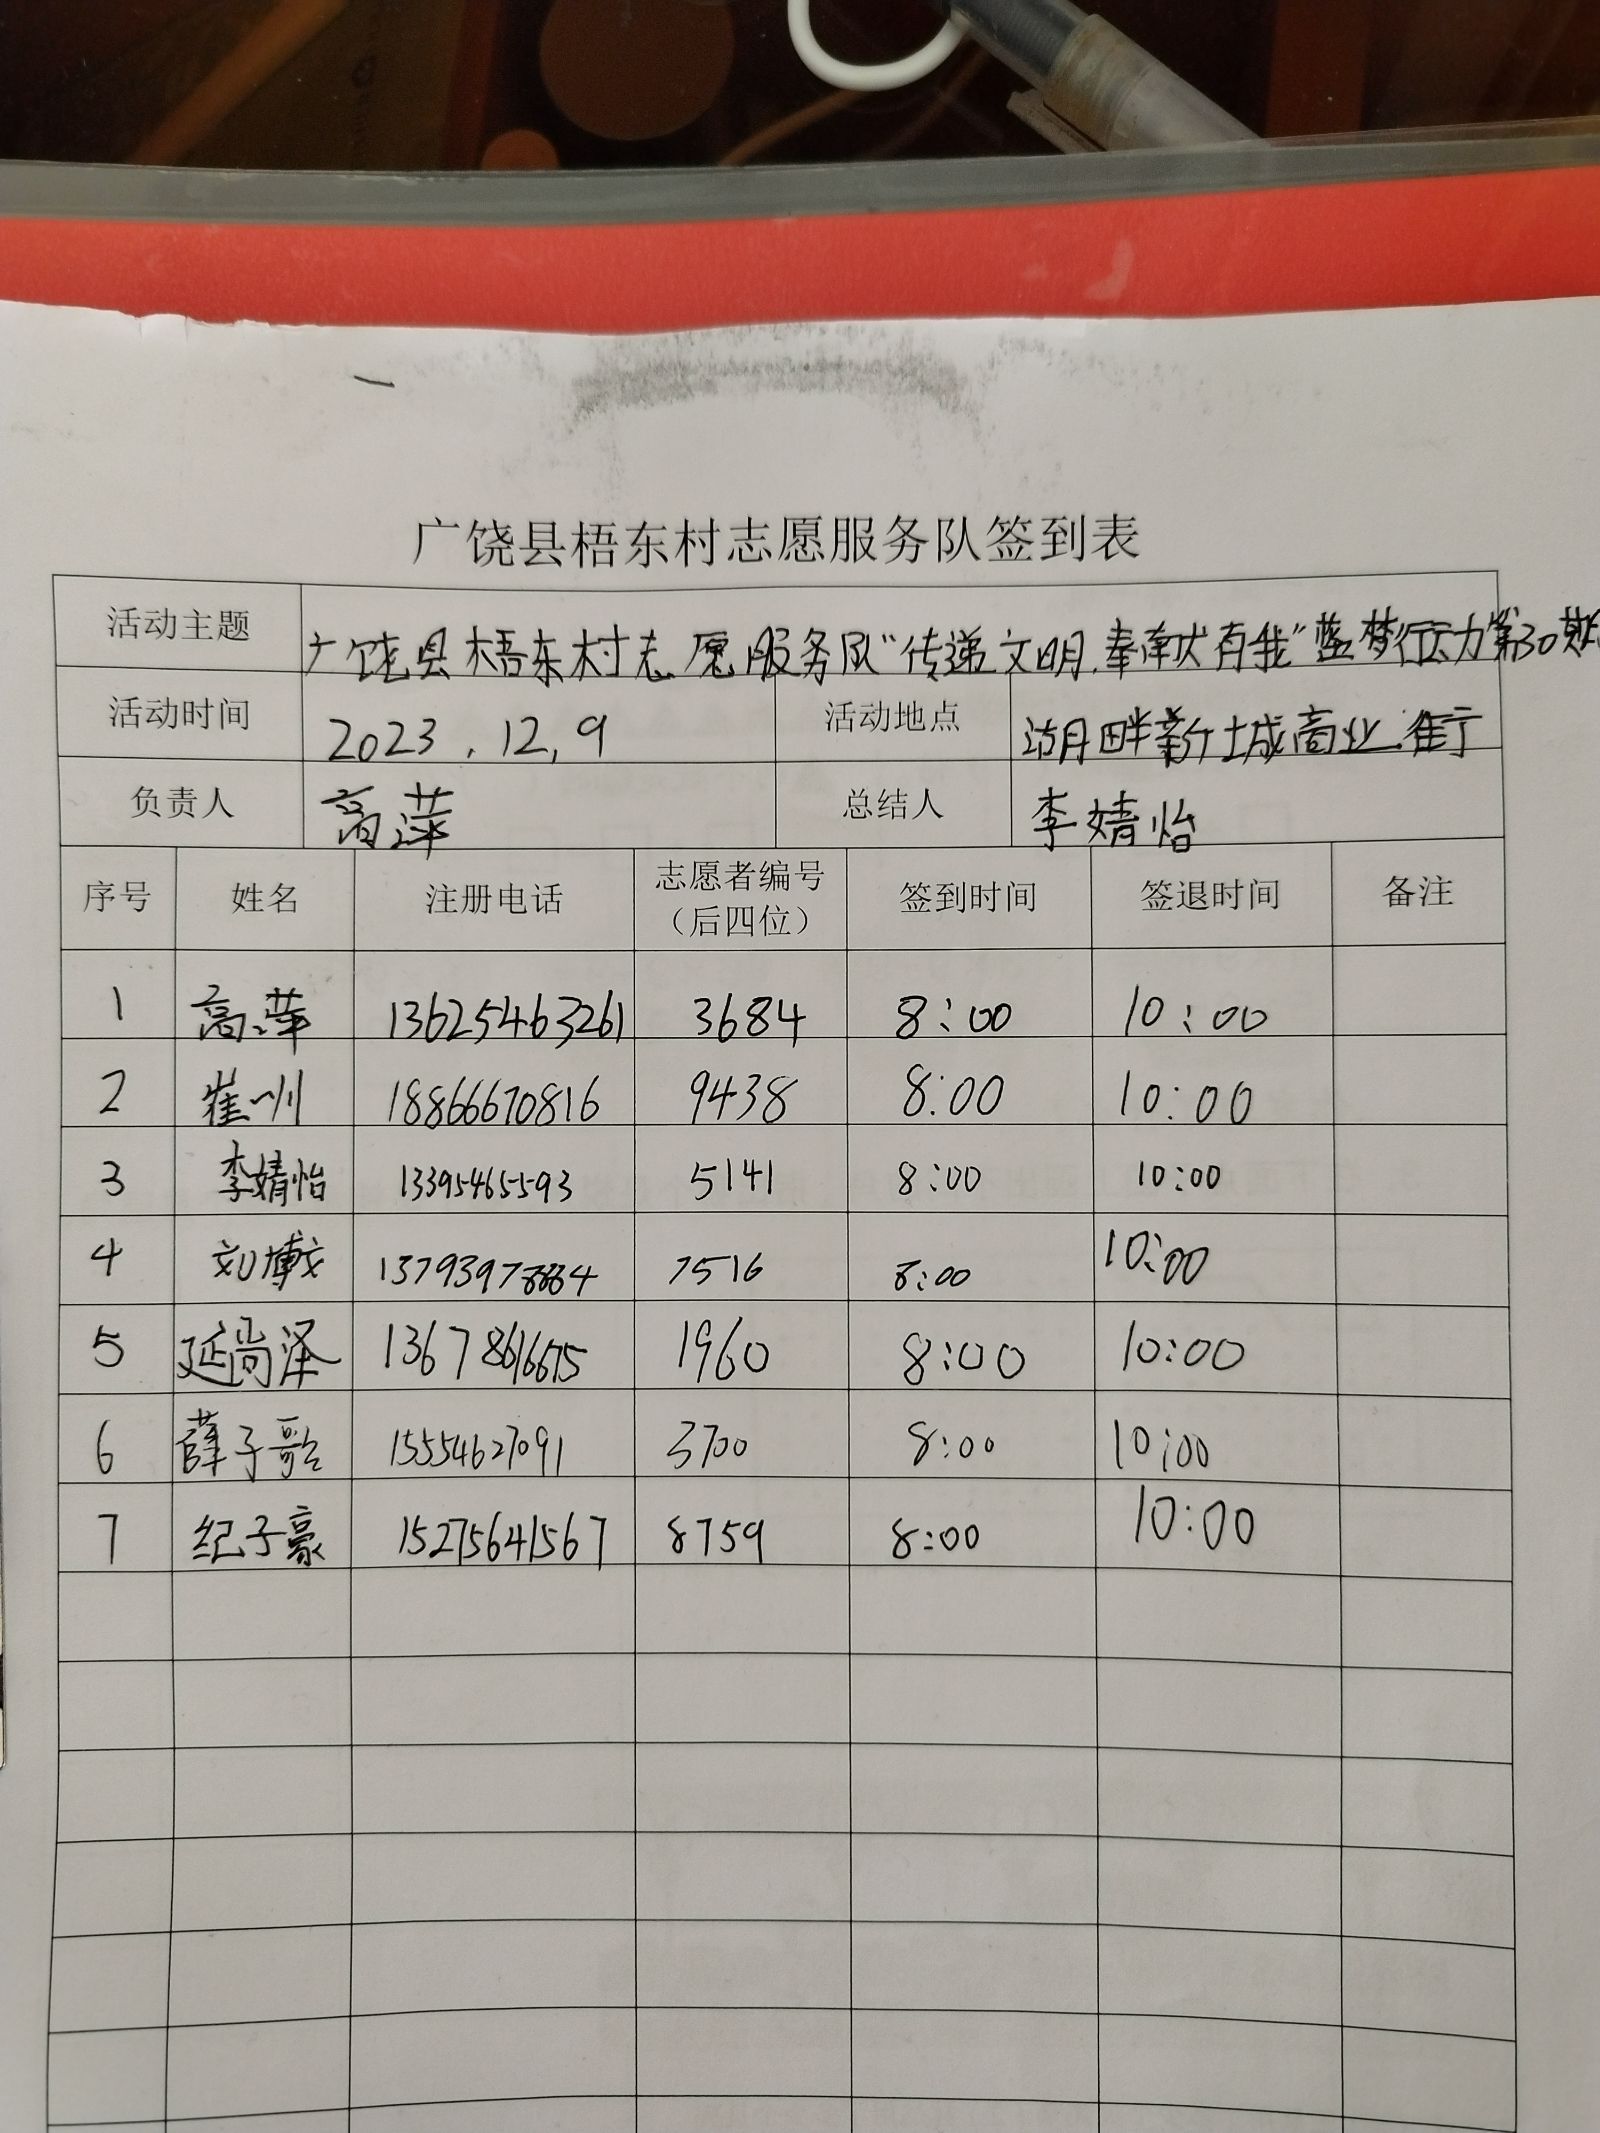 广饶县梧东村志愿服务队签到表
活动主题 广饶县梧东村志愿服务队“传递文明.奉献有我”蓝梦行动第30期
活动时间 2023.12.9 活动地点 湖畔新城商业街
负责人 高萍 总结人 李婧怡
序号 姓名 注册电话 志愿者编号（后四位） 签到时间 签退时间 备注
1 高萍 13625463261 3684 8:00 10:00
2 崔 18866670816 9438 8:00 10:00
3 李婧怡 13395465593 5141 8:00 10:00
4 刘博文 7516 8:00 10:00
5 延尚泽 13678616675 1960 8:00 10:00
6 薛子歌 15554627091 3700 8:00 10:00
7 纪子豪 15275641567 8759 8:00 10:00